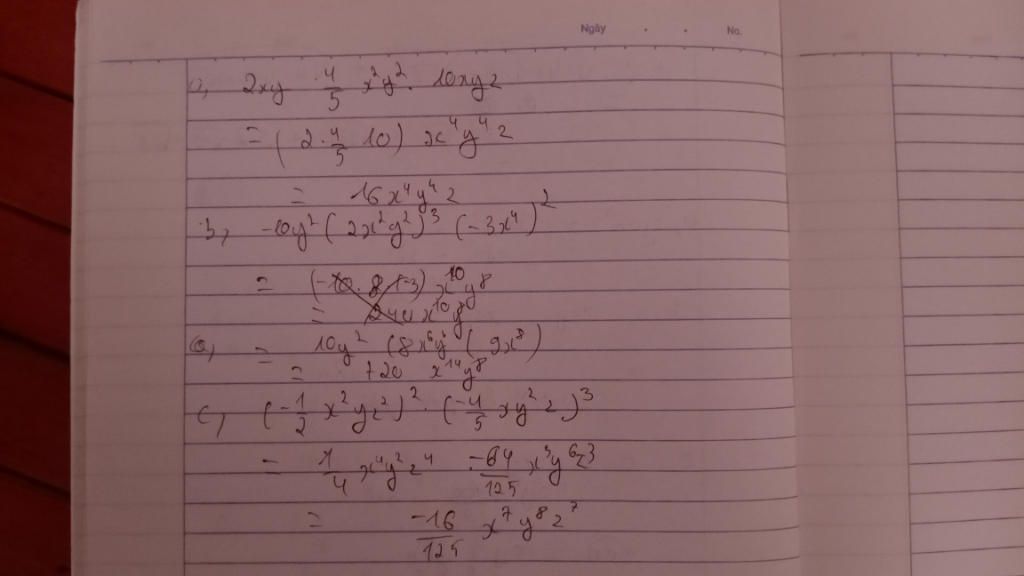 Ngày . . No.
a, 2xy . 4/5 x²y² . 10xyz
= (2 . 4/5 10) x⁴y⁴z
= 16x⁴y⁴z
b, -10y² (2x²y²)³ (-3x⁴)²
= (-10 . 8 (-3)) x¹⁰y⁸
= x¹⁰y⁸
= 10y² (8x⁶y⁶ (9x⁸)
= 720 x¹⁴y⁸
c, (-1/2 x²yz²)² . (-4/5 xy²z)³
= 1/4 x⁴y²z⁴ . -64/125 x³y⁶z³
= -16/125 x⁷y⁸z⁷